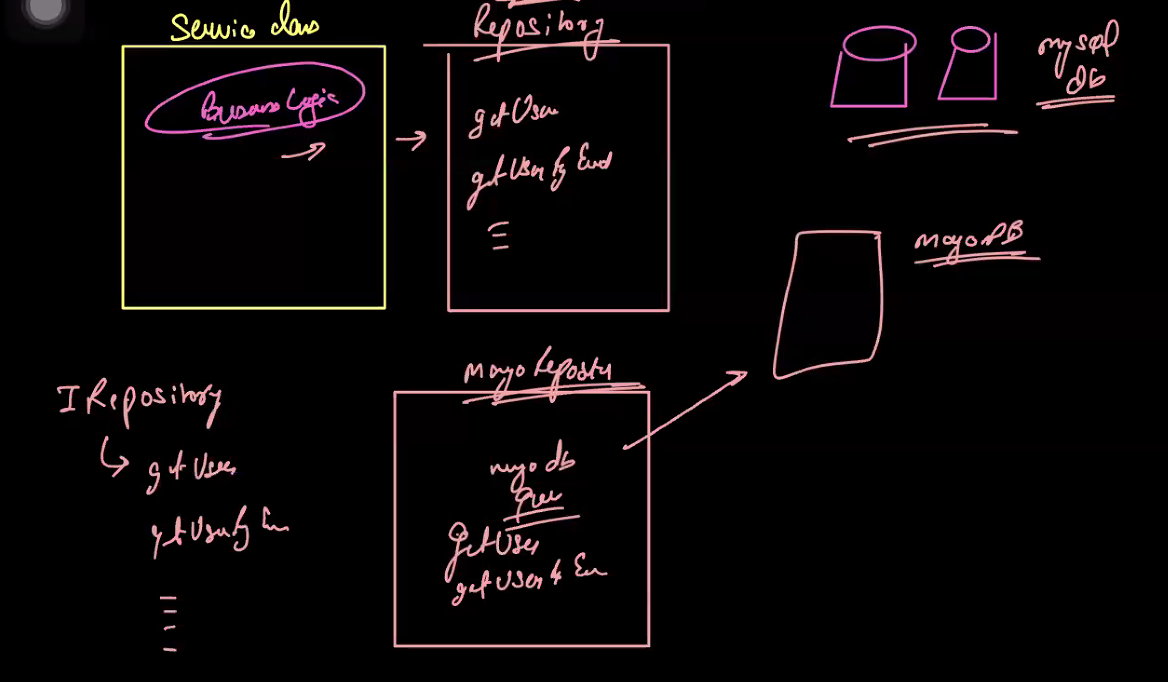 Service class
Business Logic
Repository
get User
get User by Email
mysql
db
MongoDB
IRepository
get User
get User by Em
Mongo Repository
mongo db
Que
get User
get User by Em